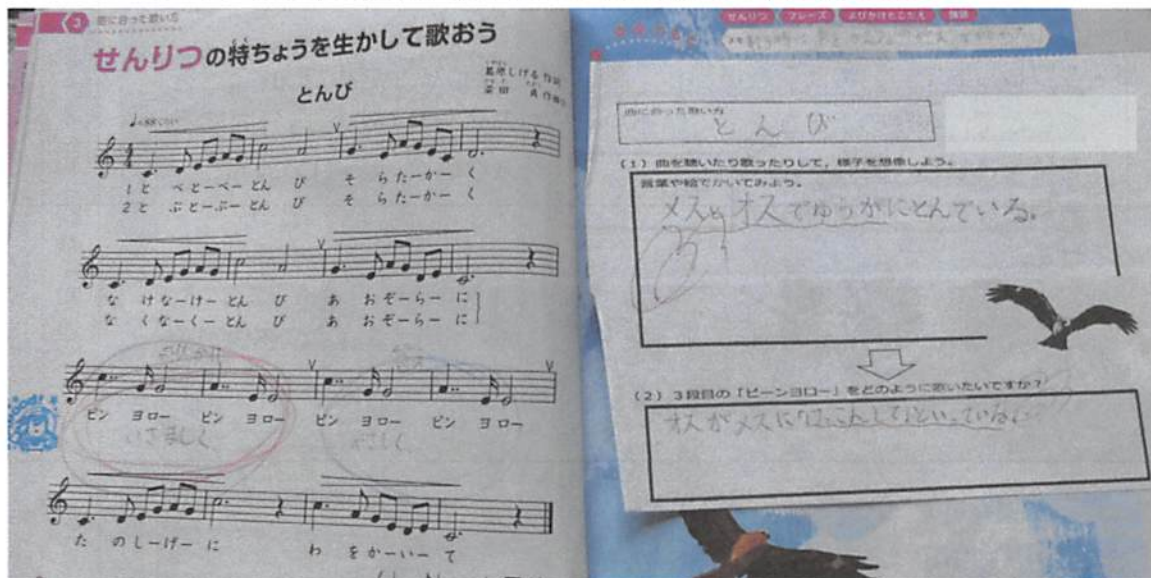 3 曲に合った歌い方
せんりつの特ちょうを生かして歌おう
とんび
葛原しげる 作詞
梁田 貞 作曲
1 と べ とーべー とん び そ らたーかー く
2 と ぶ とーぶー とん び そ らたーかー く
な け なーけー とん び あ おぞーらー に
な く なーくー とん び あ おぞーらー に
ピン ヨロー ピン ヨロー ピン ヨロー ピン ヨロー
いさましく
やさしく
た のしーげー に わ をかーいー て
せんりつ フレーズ よびかけとこたえ 強弱
曲に合った歌い方
とんび
(1) 曲を聴いたり歌ったりして，様子を想像しよう。
言葉や絵でかいてみよう。
メスとオスでゆうがにとんでいる。
(2) 3段目の「ピーンヨロー」をどのように歌いたいですか？
オスがメスに「けっこんして」といっている。